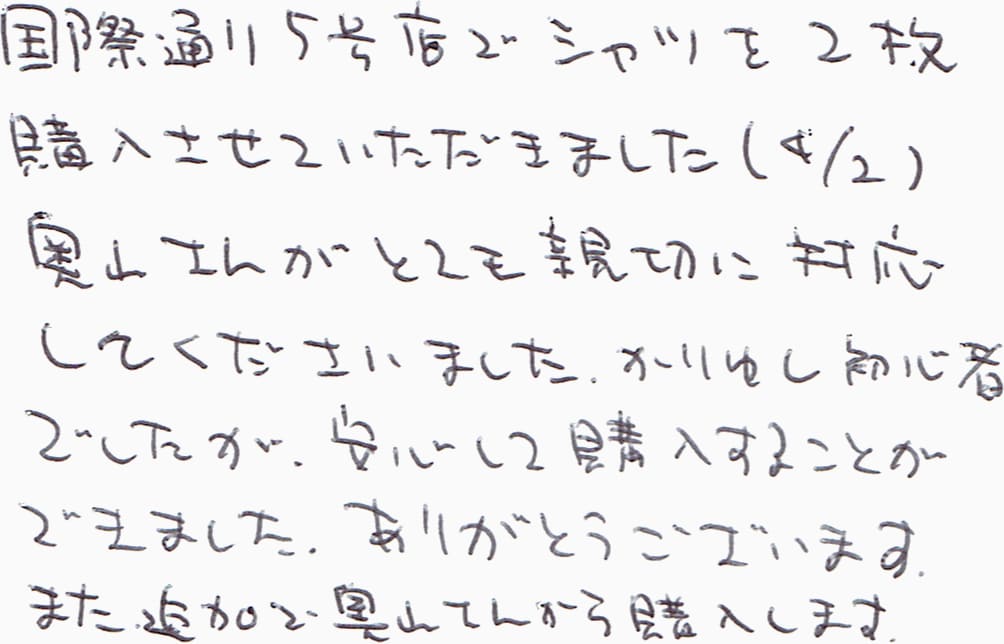 国際通り5号店でシャツを2枚
購入させていただきました(4/2)
奥山さんがとても親切に対応
してくださいました。かりゆし初心者
でしたが、安心して購入することが
できました。ありがとうございます。
また追加で奥山さんから購入します。